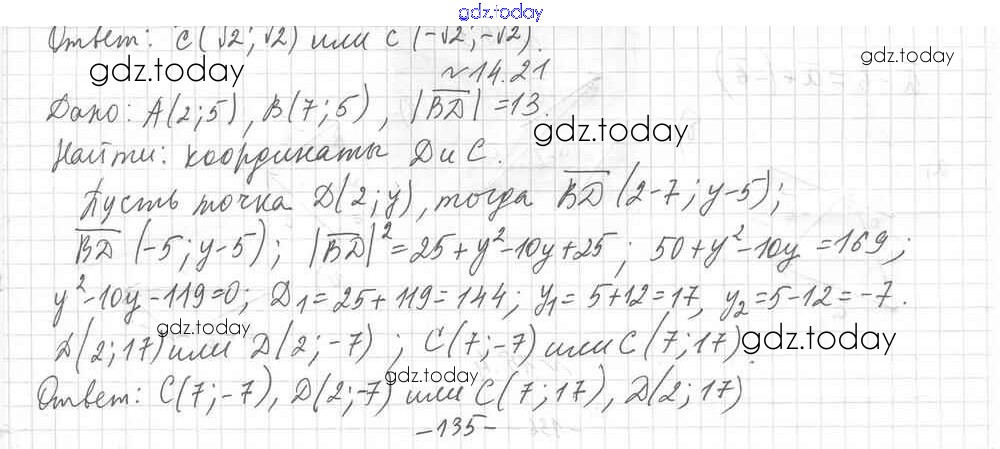 gdz.today
Ответ: C(√2; √2) или C(-√2; -√2).
gdz.today
gdz.today
№14.21
Дано: A(2;5), B(7;5), |BD| = 13.
gdz.today
Найти: координаты D и C.
Пусть точка D(2; y), тогда BD (2-7; y-5);
BD (-5; y-5); |BD|² = 25 + y² - 10y + 25; 50 + y² - 10y = 169;
y² - 10y - 119 = 0; D₁ = 25 + 119 = 144; y₁ = 5 + 12 = 17, y₂ = 5 - 12 = -7.
gdz.today
gdz.today
D(2; 17) или D(2; -7); C(7; -7) или C(7; 17).
gdz.today
Ответ: C(7; -7), D(2; -7) или C(7; 17), D(2; 17)
-135-